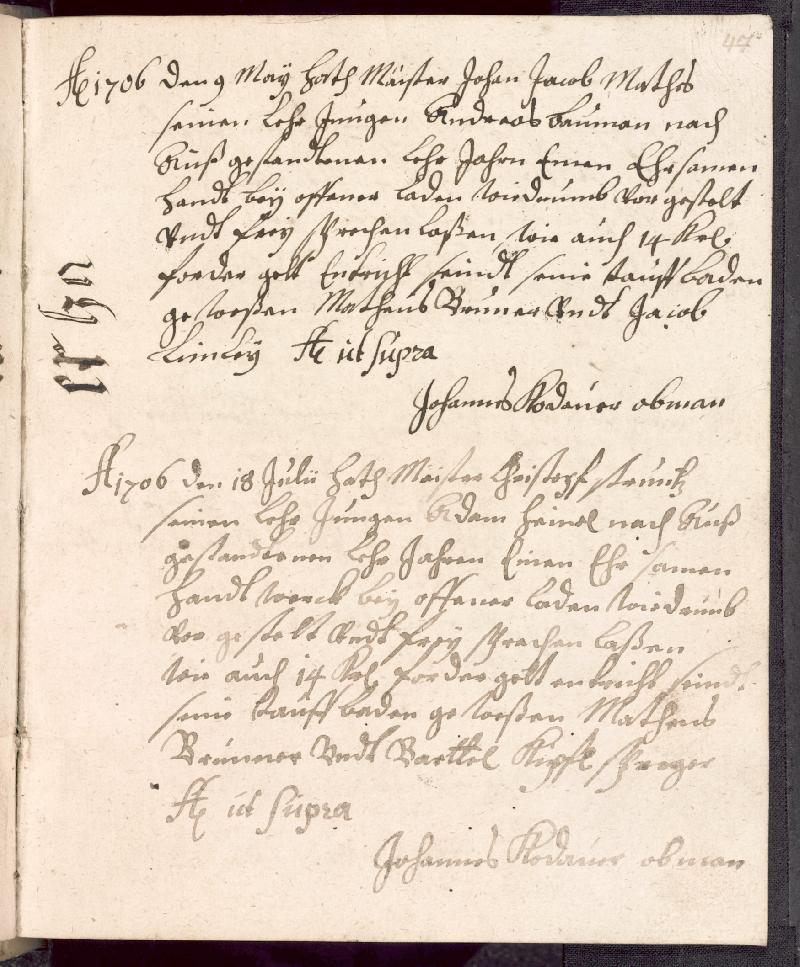 47
Ao 1706 den 9 May hath Maister Johan Jacob Mathes
seinen Lehr Jungen Andreas bauman nach
Auß gestandtenen Lehr Jahrn Einen Ehrsamen
handt bey offener laden widrumb vor gestelt
Vndt frey sprechen laßen, wie auch 14 Krl
forder gelt Entricht seindt seine tauff baden
geweßen Matheus Bruner Vndt Jacob
Ao ut supra
Johannes Kodauer obman
Ao 1706 den 18 Julii hath Maister Christopf
seinen Lehr Jungen Adam heinel nach Auß
gestandtenen Lehr Jahren Einen Ehr samen
handt werck bey offener laden widrumb
vor gestelt Vndt frey sprechen laßen
wie auch 14 Krl forder gelt entricht seindt
seine tauff baden geweßen Matheus
Brunner Vndt Barttel
Ao ut supra
Johannes Kodauer obman